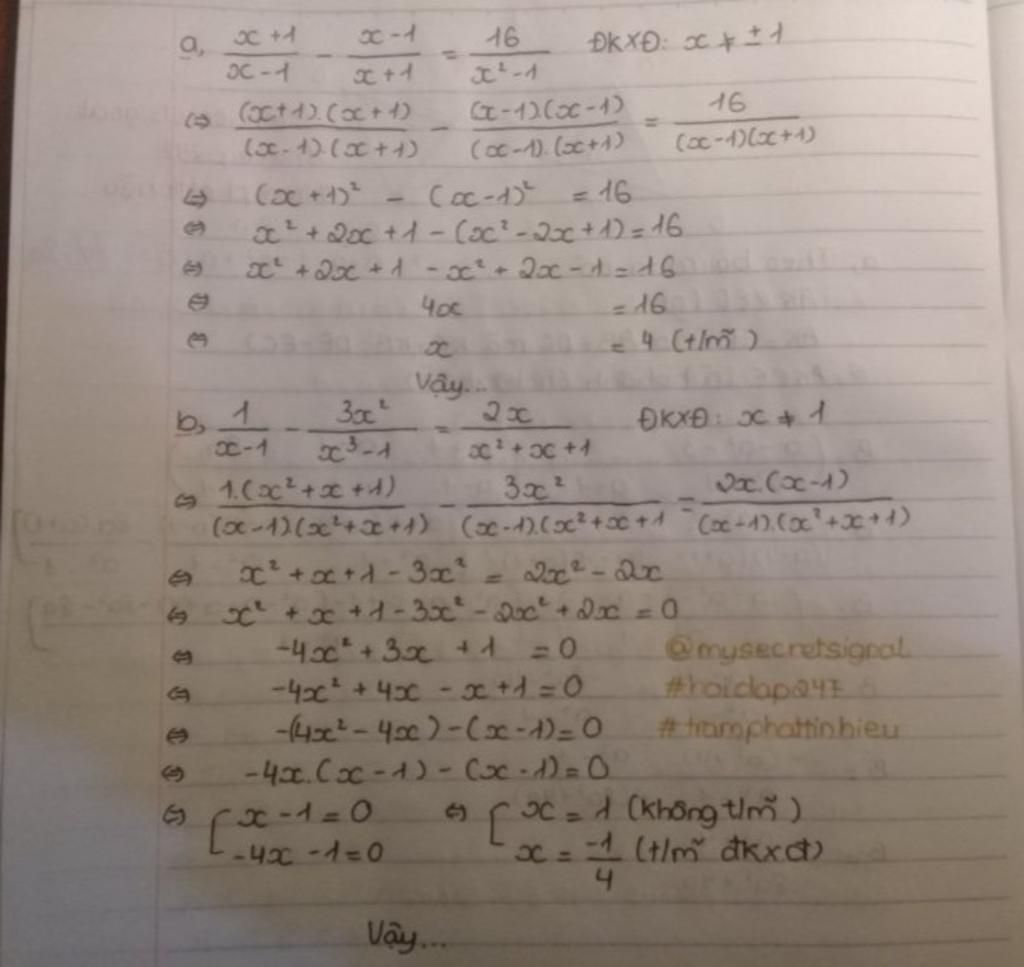 a, \frac{x+1}{x-1} - \frac{x-1}{x+1} = \frac{16}{x²-1} ĐKXĐ: x ≠ ±1
⇔ \frac{(x+1).(x+1)}{(x-1).(x+1)} - \frac{(x-1).(x-1)}{(x-1).(x+1)} = \frac{16}{(x-1)(x+1)}
⇔ (x+1)² - (x-1)² = 16
⇔ x² + 2x + 1 - (x² - 2x + 1) = 16
⇔ x² + 2x + 1 - x² + 2x - 1 = 16
⇔ 4x = 16
⇔ x = 4 (t/m~)
Vậy...
b, \frac{1}{x-1} - \frac{3x²}{x³-1} = \frac{2x}{x²+x+1} ĐKXĐ: x ≠ 1
⇔ \frac{1.(x²+x+1)}{(x-1).(x²+x+1)} - \frac{3x²}{(x-1).(x²+x+1} = \frac{2x.(x-1)}{(x-1).(x²+x+1)}
⇔ x² + x + 1 - 3x² = 2x² - 2x
⇔ x² + x + 1 - 3x² - 2x² + 2x = 0
⇔ -4x² + 3x + 1 = 0 @mysecretsignal
⇔ -4x² + 4x - x + 1 = 0 #hoidap247
⇔ -(4x² - 4x) - (x - 1) = 0 #tramphattinhieu
⇔ -4x.(x - 1) - (x - 1) = 0
⇔ [ x - 1 = 0 ⇔ [ x = 1 (không t/m~)
-4x - 1 = 0 x = \frac{-1}{4} (t/m~ đkxđ)
Vậy...